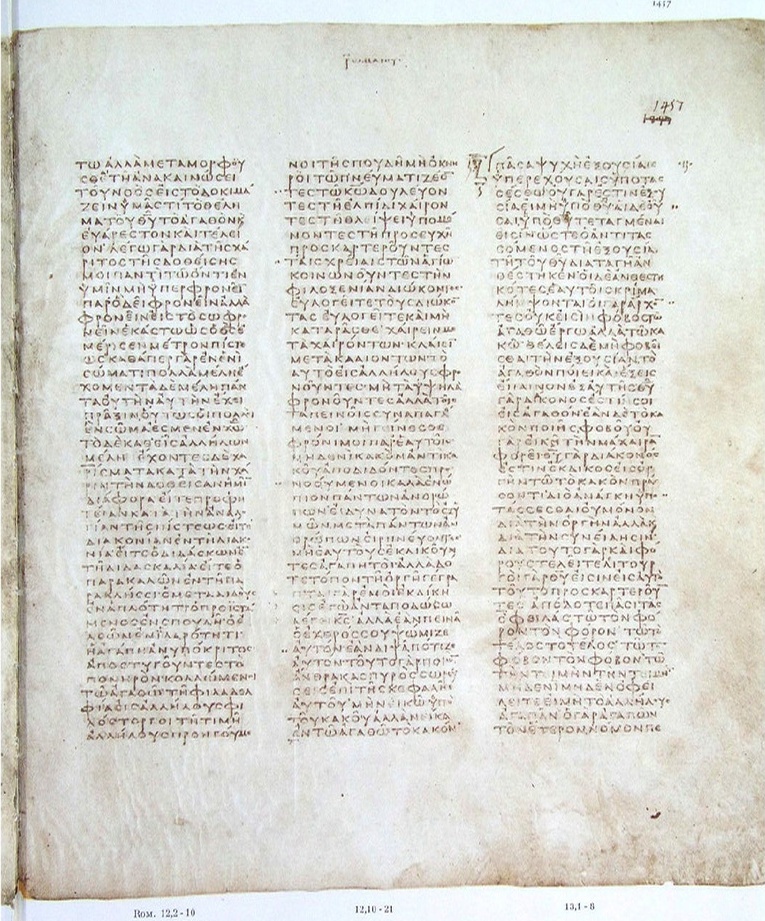 1417
ΡΩΜΑΙΟΥϹ
1457
ΤΩΑΛΛΑΜΕΤΑΜΟΡΦΟΥ
ϹΘΕΤΗΑΝΑΚΑΙΝΩϹΕΙ
ΤΟΥΝΟΟϹΕΙϹΤΟΔΟΚΙΜΑ
ΖΕΙΝΥΜΑϹΤΙΤΟΘΕΛΗ
ΜΑΤΟΥΘΥΤΟΑΓΑΘΟΝΚ
ΕΥΑΡΕϹΤΟΝΚΑΙΤΕΛΕΙ
ΟΝ ΛΕΓΩΓΑΡΔΙΑΤΗϹΧΑ
ΡΙΤΟϹΤΗϹΔΟΘΕΙϹΗϹ
ΜΟΙΠΑΝΤΙΤΩΟΝΤΙΕΝ
ΥΜΙΝΜΗΥΠΕΡΦΡΟΝΕΙ
ΠΑΡΟΔΕΙΦΡΟΝΕΙΝΑΛΛΑ
ΦΡΟΝΕΙΝΕΙϹΤΟϹΩΦΡ
ΝΕΙΝΕΚΑϹΤΩΩϹΟΘϹΕ
ΜΕΡΙϹΕΝΜΕΤΡΟΝΠΙϹΤΕ
ΩϹΚΑΘΑΠΕΡΓΑΡΕΝΕΝΙ
ϹΩΜΑΤΙΠΟΛΛΑΜΕΛΗΕ
ΧΟΜΕΝΤΑΔΕΜΕΛΗΠΑΝ
ΤΑΟΥΤΗΝΑΥΤΗΝΕΧΕΙ
ΠΡΑΞΙΝΟΥΤΩϹΟΙΠΟΛΛΟΙ
ΕΝϹΩΜΑΕϹΜΕΝΕΝΧΩ
ΤΟΔΕΚΑΘΕΙϹΑΛΛΗΛΩΝ
ΜΕΛΗ ΕΧΟΝΤΕϹΔΕΧΑ
ΡΙϹΜΑΤΑΚΑΤΑΤΗΝΧΑ
ΡΙΝΤΗΝΔΟΘΕΙϹΑΝΗΜΙ
ΔΙΑΦΟΡΑΕΙΤΕΠΡΟΦΗ
ΤΕΙΑΝΚΑΤΑΤΗΝΑΝΑΛΟ
ΓΙΑΝΤΗϹΠΙϹΤΕΩϹΕΙΤΕ
ΔΙΑΚΟΝΙΑΝΕΝΤΗΔΙΑΚΟ
ΝΙΑΕΙΤΕΟΔΙΔΑϹΚΩΝΕ
ΤΗΔΙΔΑϹΚΑΛΙΑΕΙΤΕΟ
ΠΑΡΑΚΑΛΩΝΕΝΤΗΠΑ
ΡΑΚΛΗϹΕΙΟΜΕΤΑΔΙΔΟΥϹ
ΕΝΑΠΛΟΤΗΤΙΟΠΡΟΙϹΤΑ
ΜΕΝΟϹΕΝϹΠΟΥΔΗΟΕ
ΛΕΩΝΕΝΙΛΑΡΟΤΗΤΙ
ΗΑΓΑΠΗΑΝΥΠΟΚΡΙΤΟϹ
ΑΠΟϹΤΥΓΟΥΝΤΕϹΤΟ
ΠΟΝΗΡΟΝΚΟΛΛΩΜΕΝΟΙ
ΤΩΑΓΑΘΩΤΗΦΙΛΑΔΕΛ
ΦΙΑΕΙϹΑΛΛΗΛΟΥϹΦΙ
ΛΟϹΤΟΡΓΟΙΤΗΤΙΜΗ
ΑΛΛΗΛΟΥϹΠΡΟΗΓΟΥΜΕ
ΝΟΙΤΗϹΠΟΥΔΗΜΗΟΚΝΗ
ΡΟΙΤΩΠΝΕΥΜΑΤΙΖΕΟ
ΤΕϹΤΩΚΩΔΟΥΛΕΥΟΝ
ΤΕϹΤΗΕΛΠΙΔΙΧΑΙΡΟΝ
ΤΕϹΤΗΘΛΕΙΨΕΙΥΠΟΜΕ
ΝΟΝΤΕϹΤΗΠΡΟϹΕΥΧΗ
ΠΡΟϹΚΑΡΤΕΡΟΥΝΤΕϹ
ΤΑΙϹΧΡΕΙΑΙϹΤΩΝΑΓΙΩ
ΚΟΙΝΩΝΟΥΝΤΕϹΤΗΝ
ΦΙΛΟΞΕΝΙΑΝΔΙΩΚΟΝ
ΕΥΛΟΓΕΙΤΕΤΟΥϹΔΙΩΚΟ
ΤΑϹ ΕΥΛΟΓΕΙΤΕΚΑΙΜΗ
ΚΑΤΑΡΑϹΘΕ ΧΑΙΡΕΙΝΜΕ
ΤΑΧΑΙΡΟΝΤΩΝΚΛΑΙΕΙ
ΜΕΤΑΚΛΑΙΟΝΤΩΝΤΟ
ΑΥΤΟΕΙϹΑΛΛΗΛΟΥϹΦΡΟ
ΝΟΥΝΤΕϹΜΗΤΑΥΨΗΛΑ
ΦΡΟΝΟΥΝΤΕϹΑΛΛΑΤΟΙϹ
ΤΑΠΕΙΝΟΙϹϹΥΝΑΠΑΓΟ
ΜΕΝΟΙ ΜΗΓΕΙΝΕϹΘΕ
ΦΡΟΝΙΜΟΙΠΑΡΕΑΥΤΟΙϹ
ΜΗΔΕΝΙΚΑΚΟΝΑΝΤΙΚΑ
ΚΟΥΑΠΟΔΙΔΟΝΤΕϹΠΡΟ
ΝΟΟΥΜΕΝΟΙΚΑΛΑΕΝΩ
ΠΙΟΝΠΑΝΤΩΝΑΝΘΡΩ
ΠΩΝΕΙΔΥΝΑΤΟΝΤΟΕΞΥ
ΜΩΝΜΕΤΑΠΑΝΤΩΝΑΝ
ΘΡΩΠΩΝΕΙΡΗΝΕΥΟΝΤΕϹ
ΜΗΕΑΥΤΟΥϹΕΚΔΙΚΟΥΝ
ΤΕϹΑΓΑΠΗΤΟΙΑΛΛΑΔΟ
ΤΕΤΟΠΟΝΤΗΟΡΓΗΓΕΓΡΑ
ΠΤΑΙΓΑΡΕΜΟΙΕΚΔΙΚΗ
ϹΙϹΕΓΩΑΝΤΑΠΟΔΩϹΩ
ΛΕΓΕΙΚϹ ΑΛΛΑΕΑΝΠΕΙΝΑ
ΟΕΧΘΡΟϹϹΟΥΨΩΜΙΖΕ
ΑΥΤΟΝΕΑΝΔΙΨΑΠΟΤΙΖΕ
ΑΥΤΟΝΤΟΥΤΟΓΑΡΠΟΙΩ
ΑΝΘΡΑΚΑϹΠΥΡΟϹϹΩΡΕΥ
ϹΕΙϹΕΠΙΤΗϹΚΕΦΑΛΗϹ
ΑΥΤΟΥ ΜΗΝΕΙΚΩΥΠΟ
ΤΟΥΚΑΚΟΥΑΛΛΑΝΕΙΚΑ
ΕΝΤΩΑΓΑΘΩΤΟΚΑΚΟΝ
ΠΑϹΑΨΥΧΗΕΞΟΥϹΙΑΙϹ
ΥΠΕΡΕΧΟΥϹΑΙϹΥΠΟΤΑϹ
ϹΕϹΘΩΟΥΓΑΡΕϹΤΙΝΕΞΟΥ
ϹΙΑΕΙΜΗΥΠΟΘΥΑΙΔΕΟΥ
ϹΑΙΥΠΟΘΥΤΕΤΑΓΜΕΝΑΙ
ΕΙϹΙΝΩϹΤΕΟΑΝΤΙΤΑϹ
ϹΟΜΕΝΟϹΤΗΕΞΟΥϹΙΑ
ΤΗΤΟΥΘΥΔΙΑΤΑΓΗΑΝ
ΘΕϹΤΗΚΕΝΟΙΔΕΑΝΘΕϹΤΗ
ΚΟΤΕϹΕΑΥΤΟΙϹΚΡΙΜΑ
ΛΗΜΨΟΝΤΑΙΟΙΓΑΡΑΡΧΟ
ΤΕϹΟΥΚΕΙϹΙΝΦΟΒΟϹΤΩ
ΑΓΑΘΩΕΡΓΩΑΛΛΑΤΩΚΑ
ΚΩ ΘΕΛΕΙϹΔΕΜΗΦΟΒΕΙ
ϹΘΑΙΤΗΝΕΞΟΥϹΙΑΝΤΟ
ΑΓΑΘΟΝΠΟΙΕΙΚΑΙΕΞΕΙϹ
ΕΠΑΙΝΟΝΕΞΑΥΤΗϹΘΥ
ΓΑΡΔΙΑΚΟΝΟϹΕϹΤΙΝϹΟΙ
ΕΙϹΑΓΑΘΟΝΕΑΝΔΕΤΟΚΑ
ΚΟΝΠΟΙΗϹΦΟΒΟΥΟΥ
ΓΑΡΕΙΚΗΤΗΝΜΑΧΑΙΡΑ
ΦΟΡΕΙΘΥΓΑΡΔΙΑΚΟΝΟϹ
ΕϹΤΙΝΕΚΔΙΚΟϹΕΙϹΟΡ
ΓΗΝΤΩΤΟΚΑΚΟΝΠΡΑϹ
ϹΟΝΤΙΔΙΟΑΝΑΓΚΗΥΠΟ
ΤΑϹϹΕϹΘΑΙΟΥΜΟΝΟΝ
ΔΙΑΤΗΝΟΡΓΗΝΑΛΛΑΚ
ΔΙΑΤΗΝϹΥΝΕΙΔΗϹΙΝ
ΔΙΑΤΟΥΤΟΓΑΡΚΑΙΦΟ
ΡΟΥϹΤΕΛΕΙΤΕΛΙΤΟΥΡ
ΓΟΙΓΑΡΘΥΕΙϹΙΝΕΙϹΑΥΤΟ
ΤΟΥΤΟΠΡΟϹΚΑΡΤΕΡΟΥ
ΤΕϹ ΑΠΟΔΟΤΕΠΑϹΙΤΑϹ
ΟΦΕΙΛΑϹΤΩΤΟΝΦΟ
ΡΟΝΤΟΝΦΟΡΟΝ ΤΩΤΟ
ΤΕΛΟϹΤΟΤΕΛΟϹ ΤΩΤΟΝ
ΦΟΒΟΝΤΟΝΦΟΒΟΝΤΩ
ΤΗΝΤΙΜΗΝΤΗΝΤΙΜΗΝ
ΜΗΔΕΝΙΜΗΔΕΝΟΦΕΙ
ΛΕΙΤΕΕΙΜΗΤΟΑΛΛΗΛΟΥϹ
ΑΓΑΠΑΝ ΟΓΑΡΑΓΑΠΩΝ
ΤΟΝΕΤΕΡΟΝΝΟΜΟΝΠΕ
Rom. 12,2-10
12,10-21
13,1-8